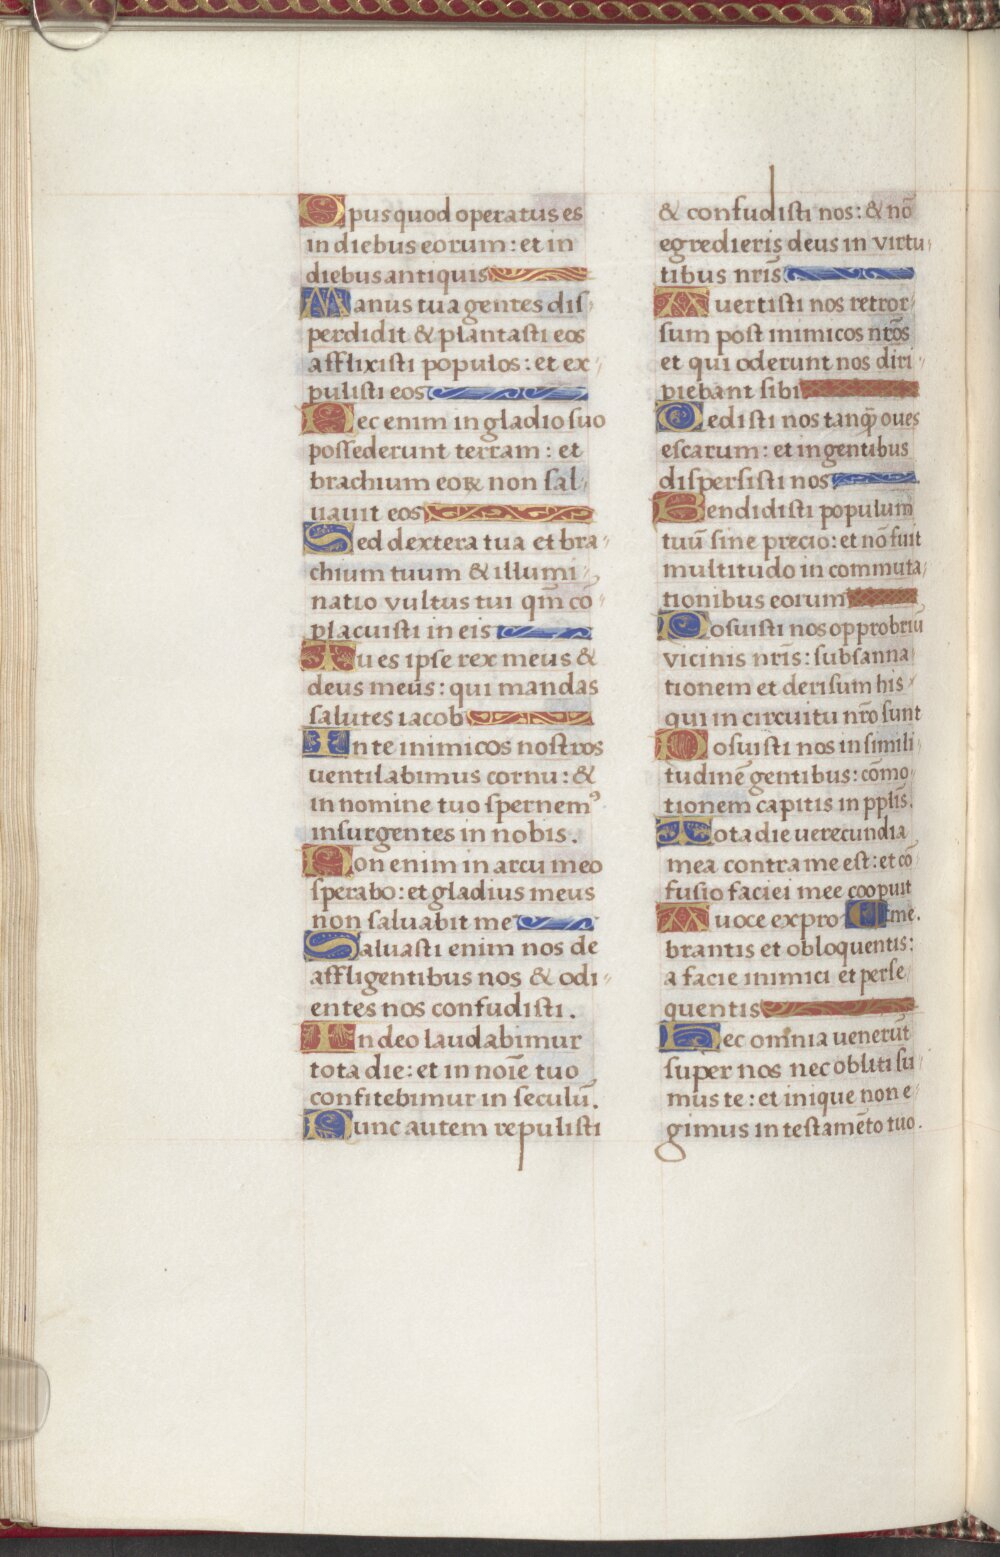 Opus quod operatus es
in diebus eorum: et in
diebus antiquis
Manus tua gentes dis-
perdidit & plantasti eos
afflixisti populos: et ex-
pulisti eos
Nec enim in gladio suo
possederunt terram: et
brachium eoꝝ non sal-
uauit eos
Sed dextera tua et bra-
chium tuum & illumi-
natio vultus tui qm̄ cō-
placuisti in eis
Tu es ipse rex meus &
deus meus: qui mandas
salutes iacob
In te inimicos nostros
uentilabimus cornu: &
in nomine tuo spernemꝰ
insurgentes in nobis.
Non enim in arcu meo
sperabo: et gladius meus
non saluabit me
Saluasti enim nos de
affligentibus nos & odi-
entes nos confudisti.
In deo laudabimur
tota die: et in noīe tuo
confitebimur in seculū.
Nunc autem repulisti
& confudisti nos: & nō
egredieris deus in virtu-
tibus nr̄is
Auertisti nos retror-
sum post inimicos nr̄os
et qui oderunt nos diri-
piebant sibi
Dedisti nos tanq̄ oues
escarum: et in gentibus
dispersisti nos
Vendidisti populum
tuū sine precio: et nō fuit
multitudo in commuta-
tionibus eorum
Posuisti nos opprobriū
vicinis nr̄is: subsanna-
tionem et derisum his
qui in circuitu nr̄o sunt
Posuisti nos in simili-
tudinē gentibus: cōmo-
tionem capitis in pplīs.
Tota die uerecundia
mea contra me est: et cō-
fusio faciei mee coopuit
me.
A uoce expro-
brantis et obloquentis:
a facie inimici et perse-
quentis
Hec omnia uenerūt
super nos nec obliti su-
mus te: et inique non e-
gimus in testamēto tuo.